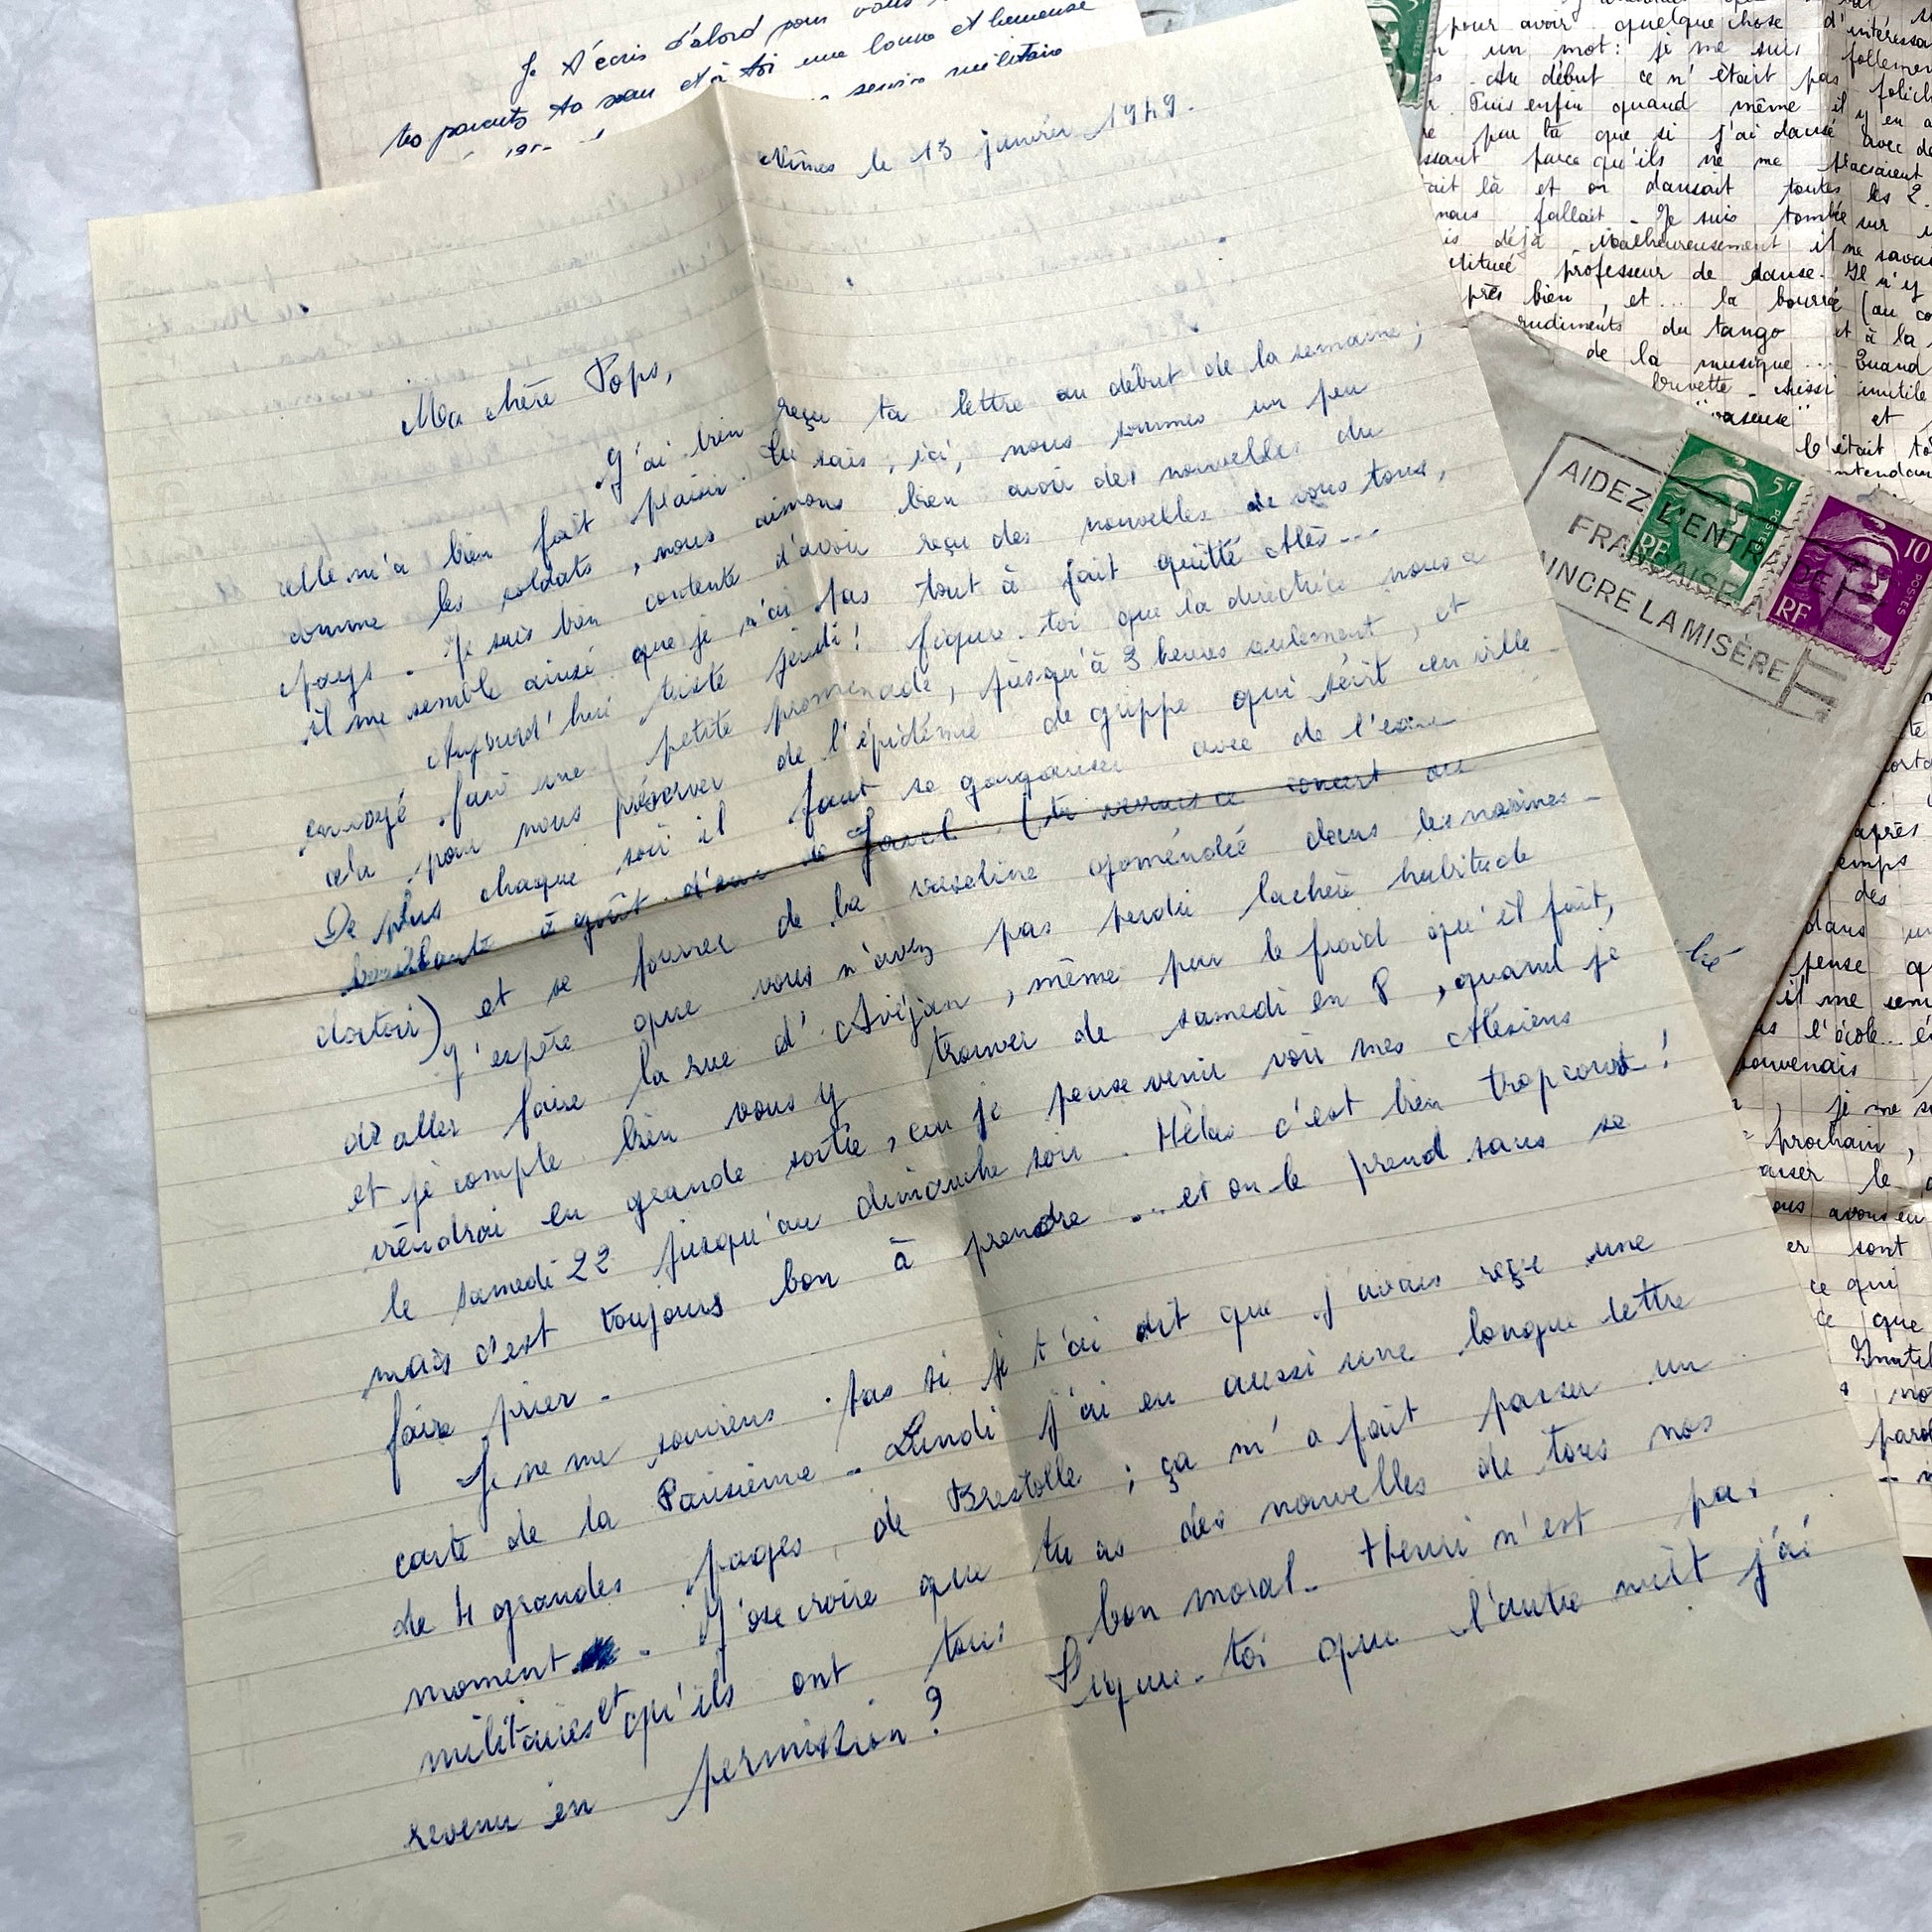 Je t'écris d'abord pour vous
tes parents ta sœur et à toi une bonne et heureuse
service militaire
Nîmes le 13 janvier 1949.
Ma chère Pops,
J'ai bien reçu ta lettre au début de la semaine ;
elle m'a bien fait plaisir. Tu sais, ici, nous sommes un peu
comme les soldats, nous aimons bien avoir des nouvelles du
pays. Je suis bien contente d'avoir reçu des nouvelles de vous tous,
il me semble ainsi que je n'ai pas tout à fait quitté Alès...
Aujourd'hui triste jeudi ! Figure-toi que la directrice nous a
envoyé faire une petite promenade, jusqu'à 3 heures seulement, et
cela pour nous préserver de l'épidémie de grippe qui sévit en ville.
De plus chaque soir il faut se gargariser avec de l'eau
bouillante à goût d'eau de Javel (tu verrais ce concert au
dortoir) et se fourrer de la vaseline goménolée dans les narines.
J'espère que vous n'avez pas perdu la chère habitude
de aller faire la rue d'Avéjan, même par le froid qu'il fait,
et je compte bien vous y trouver de samedi en 8, quand je
viendrai en grande sortie, car je pense venir voir mes Alésiens
le samedi 22 jusqu'au dimanche soir. Hélas c'est bien trop court !
mais c'est toujours bon à prendre ... et on le prend sans se
faire prier.
Je ne me souviens pas si je t'ai dit que j'avais reçu une
carte de la Parisienne. Lundi j'ai eu aussi une longue lettre
de 4 grandes pages, de Brestolle ; ça m'a fait passer un
moment. J'ose croire que tu as des nouvelles de tous nos
militaires et qu'ils ont tous bon moral. Henri n'est pas
revenu en permission ? Figure-toi que l'autre nuit j'ai
pour avoir quelque chose d'intéressa
un mot : je me suis follemen
Au début ce n'était pas folich
Puis enfin quand même il y en a
peu ta que si j'ai dansé avec de
ssant parce qu'ils ne me
tait là et on dansait toutes les 2.
nous fallait. Je suis tombée sur
is déjà. Malheureusement il ne savai
stitué professeur de danse. Il n'y
près bien, et... la bourrée (au co
rudiments du tango et à la
de la musique... Quand
buvette. Aussi inutile
"vaseuse" et
c'était
ntendan
AIDEZ L'ENTR'AIDE
FRANÇAISE A
AINCRE LA MISÈRE
5F
POSTES
RF
10
POSTES
RF
après
emps
des
dans
pense q
il me sem
s l'école.. é
ouvenais
je me s
prochain,
aiser le
ous avons eu
er sont
ce qui
ce que
Inutil
parol